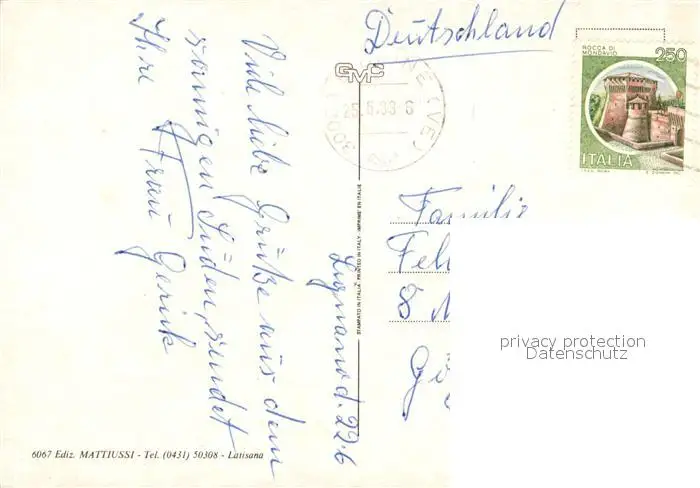 Deutschland
ROCCA DI
MONDAVIO
250
ITALIA
GMC
25.6.83
(VE)
Lignano d. 22.6
Viele liebe Grüße aus dem
sonnigen Süden, sendet
Ihre Frau Gerik
Familie
Feh
8 M
Gö
privacy protection
Datenschutz
STAMPATO IN ITALIA - PRINTED IN ITALY - IMPRIMÉ EN ITALIE
6067 Ediz. MATTIUSSI - Tel. (0431) 50308 - Latisana